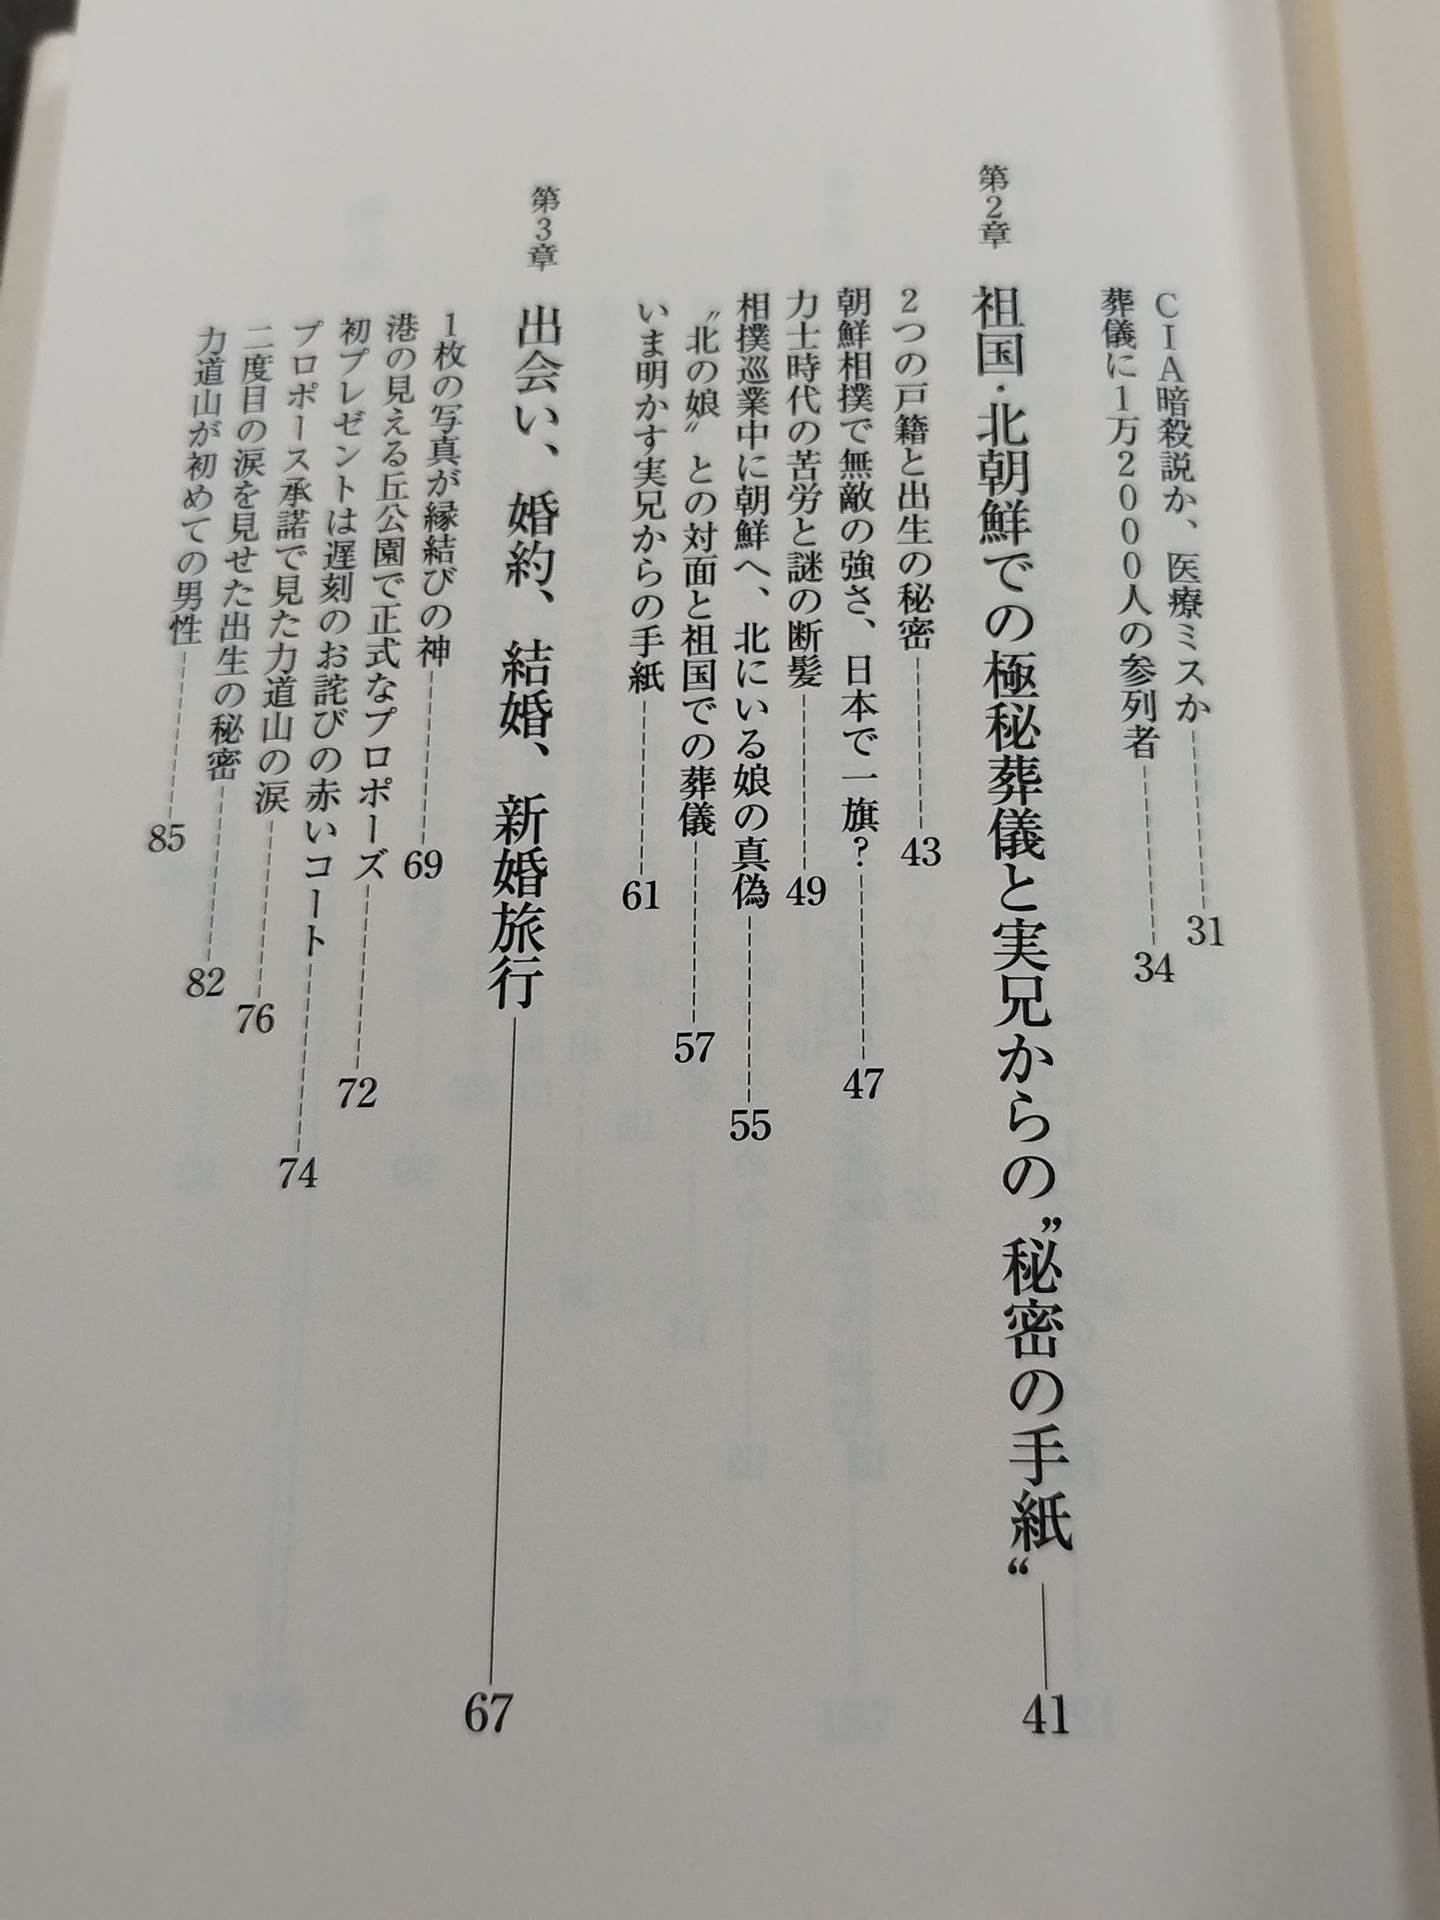 CIA暗殺説か、医療ミスか 31
葬儀に1万2000人の参列者 34
第2章 祖国・北朝鮮での極秘葬儀と実兄からの〝秘密の手紙〟 41
2つの戸籍と出生の秘密 43
朝鮮相撲で無敵の強さ、日本で一旗? 47
力士時代の苦労と謎の断髪 49
相撲巡業中に朝鮮へ、北にいる娘の真偽 55
〝北の娘〟との対面と祖国での葬儀 57
いま明かす実兄からの手紙 61
第3章 出会い、婚約、結婚、新婚旅行 67
1枚の写真が縁結びの神 69
港の見える丘公園で正式なプロポーズ 72
初プレゼントは遅刻のお詫びの赤いコート 74
プロポーズ承諾で見た力道山の涙 76
二度目の涙を見せた出生の秘密 82
力道山が初めての男性 85